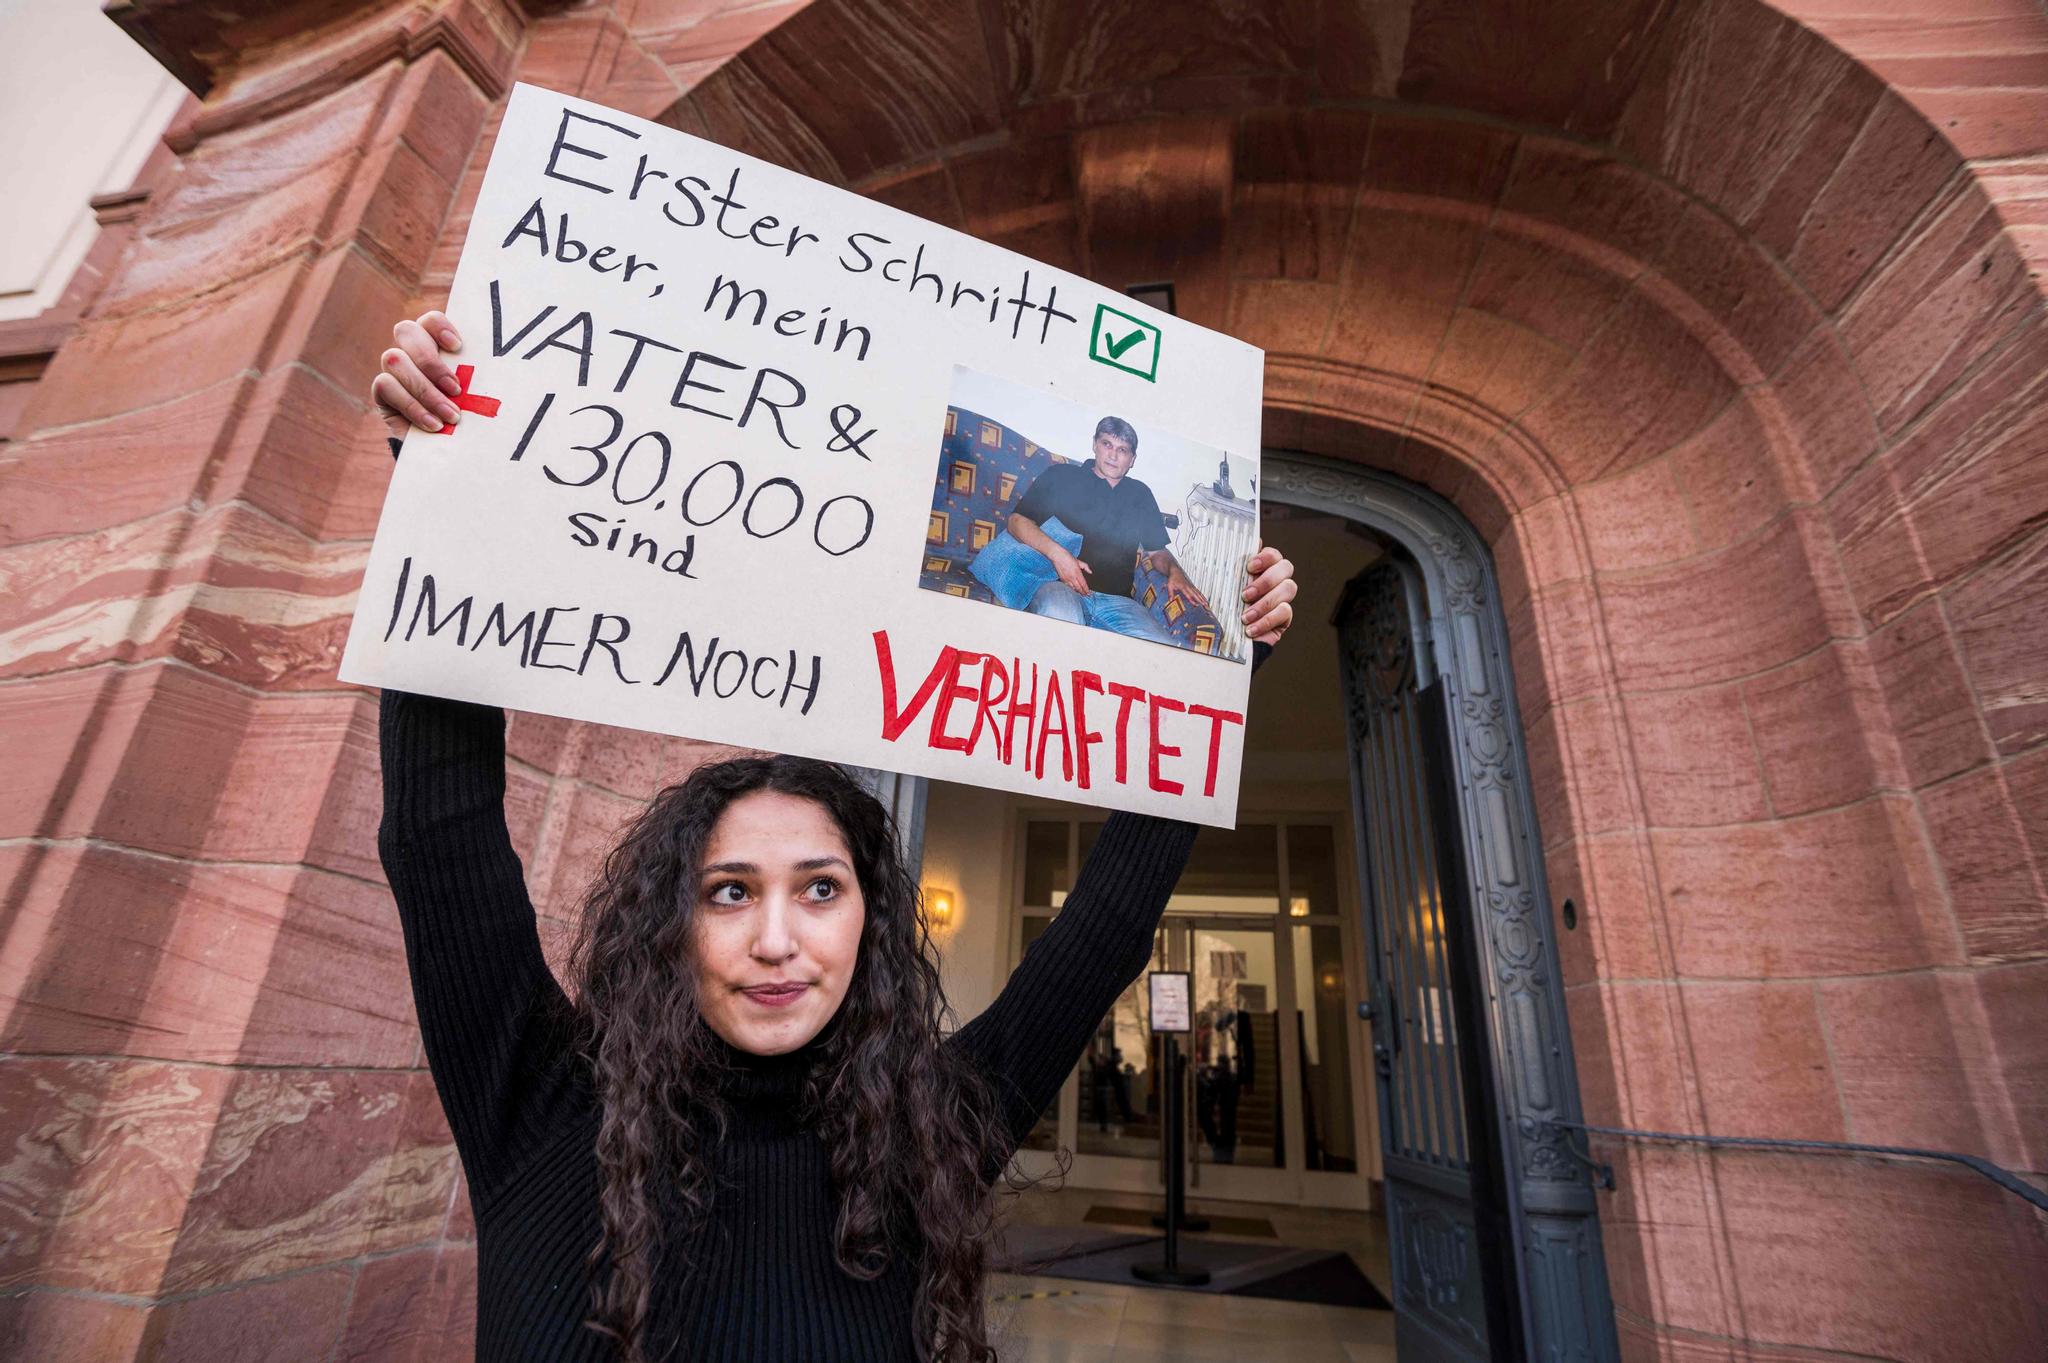 Erster Schritt
Aber, mein
VATER &
+130.000
sind
IMMER NOCH VERHAFTET